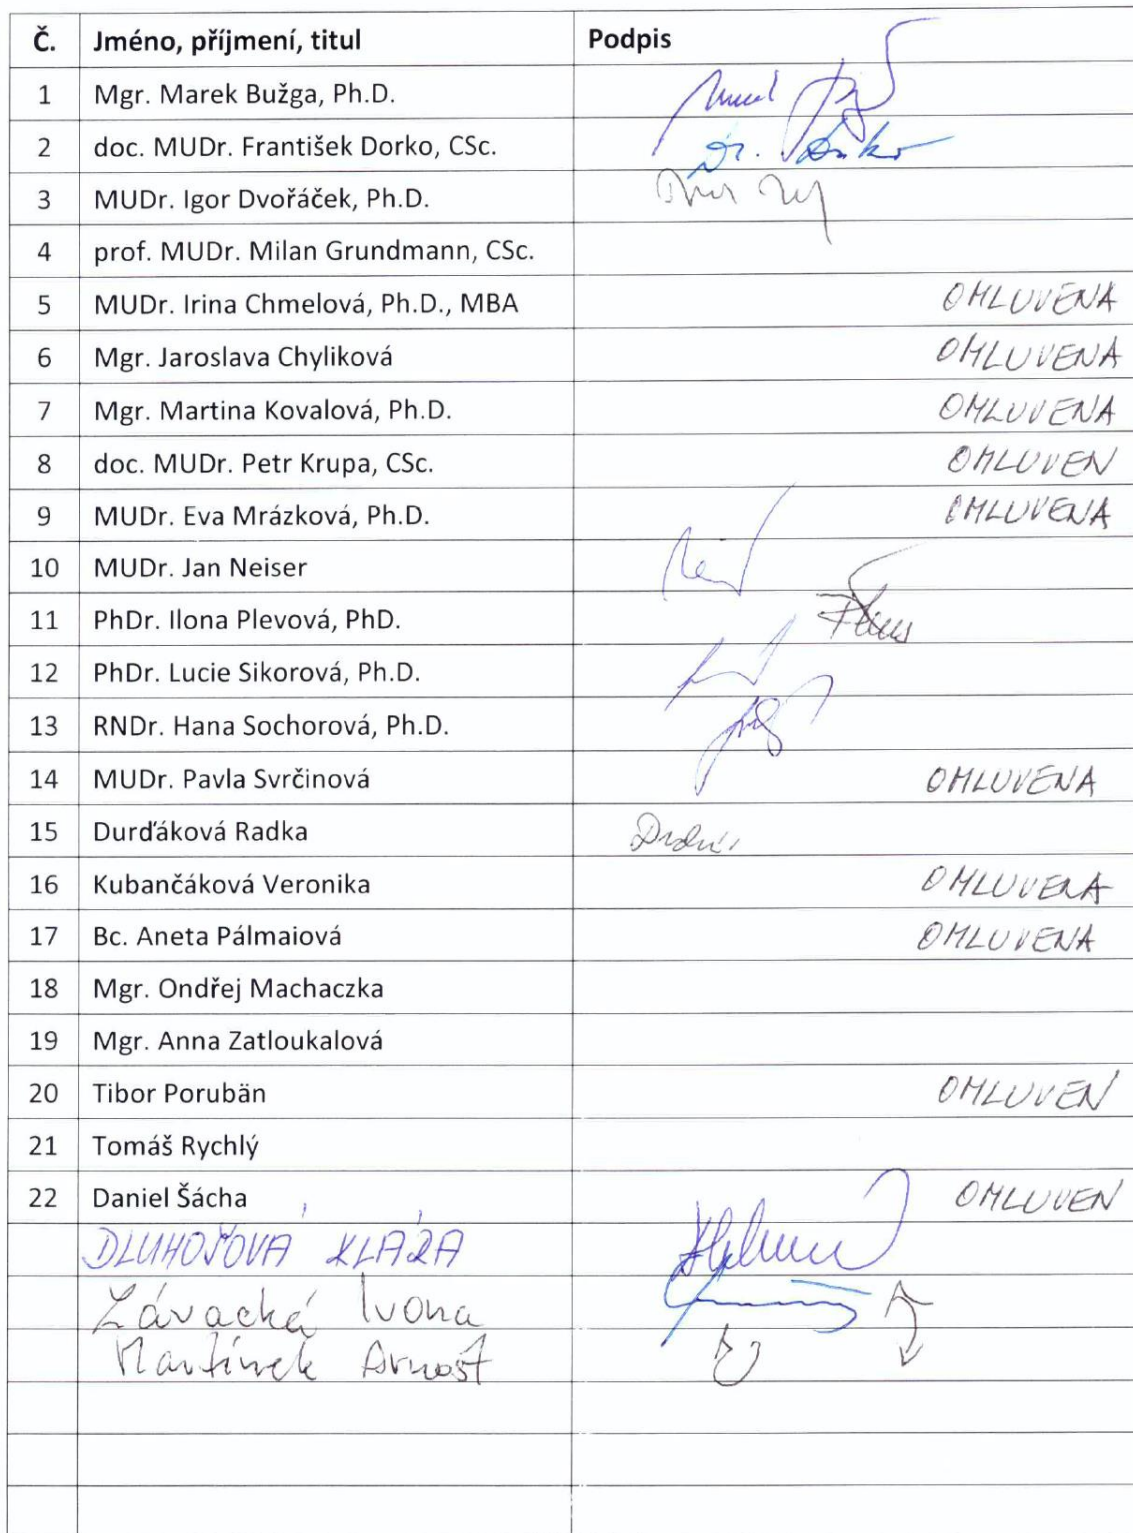 Č. Jméno, příjmení, titul Podpis
1 Mgr. Marek Bužga, Ph.D.
2 doc. MUDr. František Dorko, CSc. Dr. Dorko
3 MUDr. Igor Dvořáček, Ph.D.
4 prof. MUDr. Milan Grundmann, CSc.
5 MUDr. Irina Chmelová, Ph.D., MBA OMLUVENA
6 Mgr. Jaroslava Chyliková OMLUVENA
7 Mgr. Martina Kovalová, Ph.D. OMLUVENA
8 doc. MUDr. Petr Krupa, CSc. OMLUVEN
9 MUDr. Eva Mrázková, Ph.D. OMLUVENA
10 MUDr. Jan Neiser
11 PhDr. Ilona Plevová, PhD.
12 PhDr. Lucie Sikorová, Ph.D.
13 RNDr. Hana Sochorová, Ph.D.
14 MUDr. Pavla Svrčinová OMLUVENA
15 Durďáková Radka
16 Kubančáková Veronika OMLUVENA
17 Bc. Aneta Pálmaiová OMLUVENA
18 Mgr. Ondřej Machaczka
19 Mgr. Anna Zatloukalová
20 Tibor Porubän OMLUVEN
21 Tomáš Rychlý
22 Daniel Šácha OMLUVEN
DLUHOŠOVÁ KLÁRA
Závacká Ivona
Martínek Arnošt